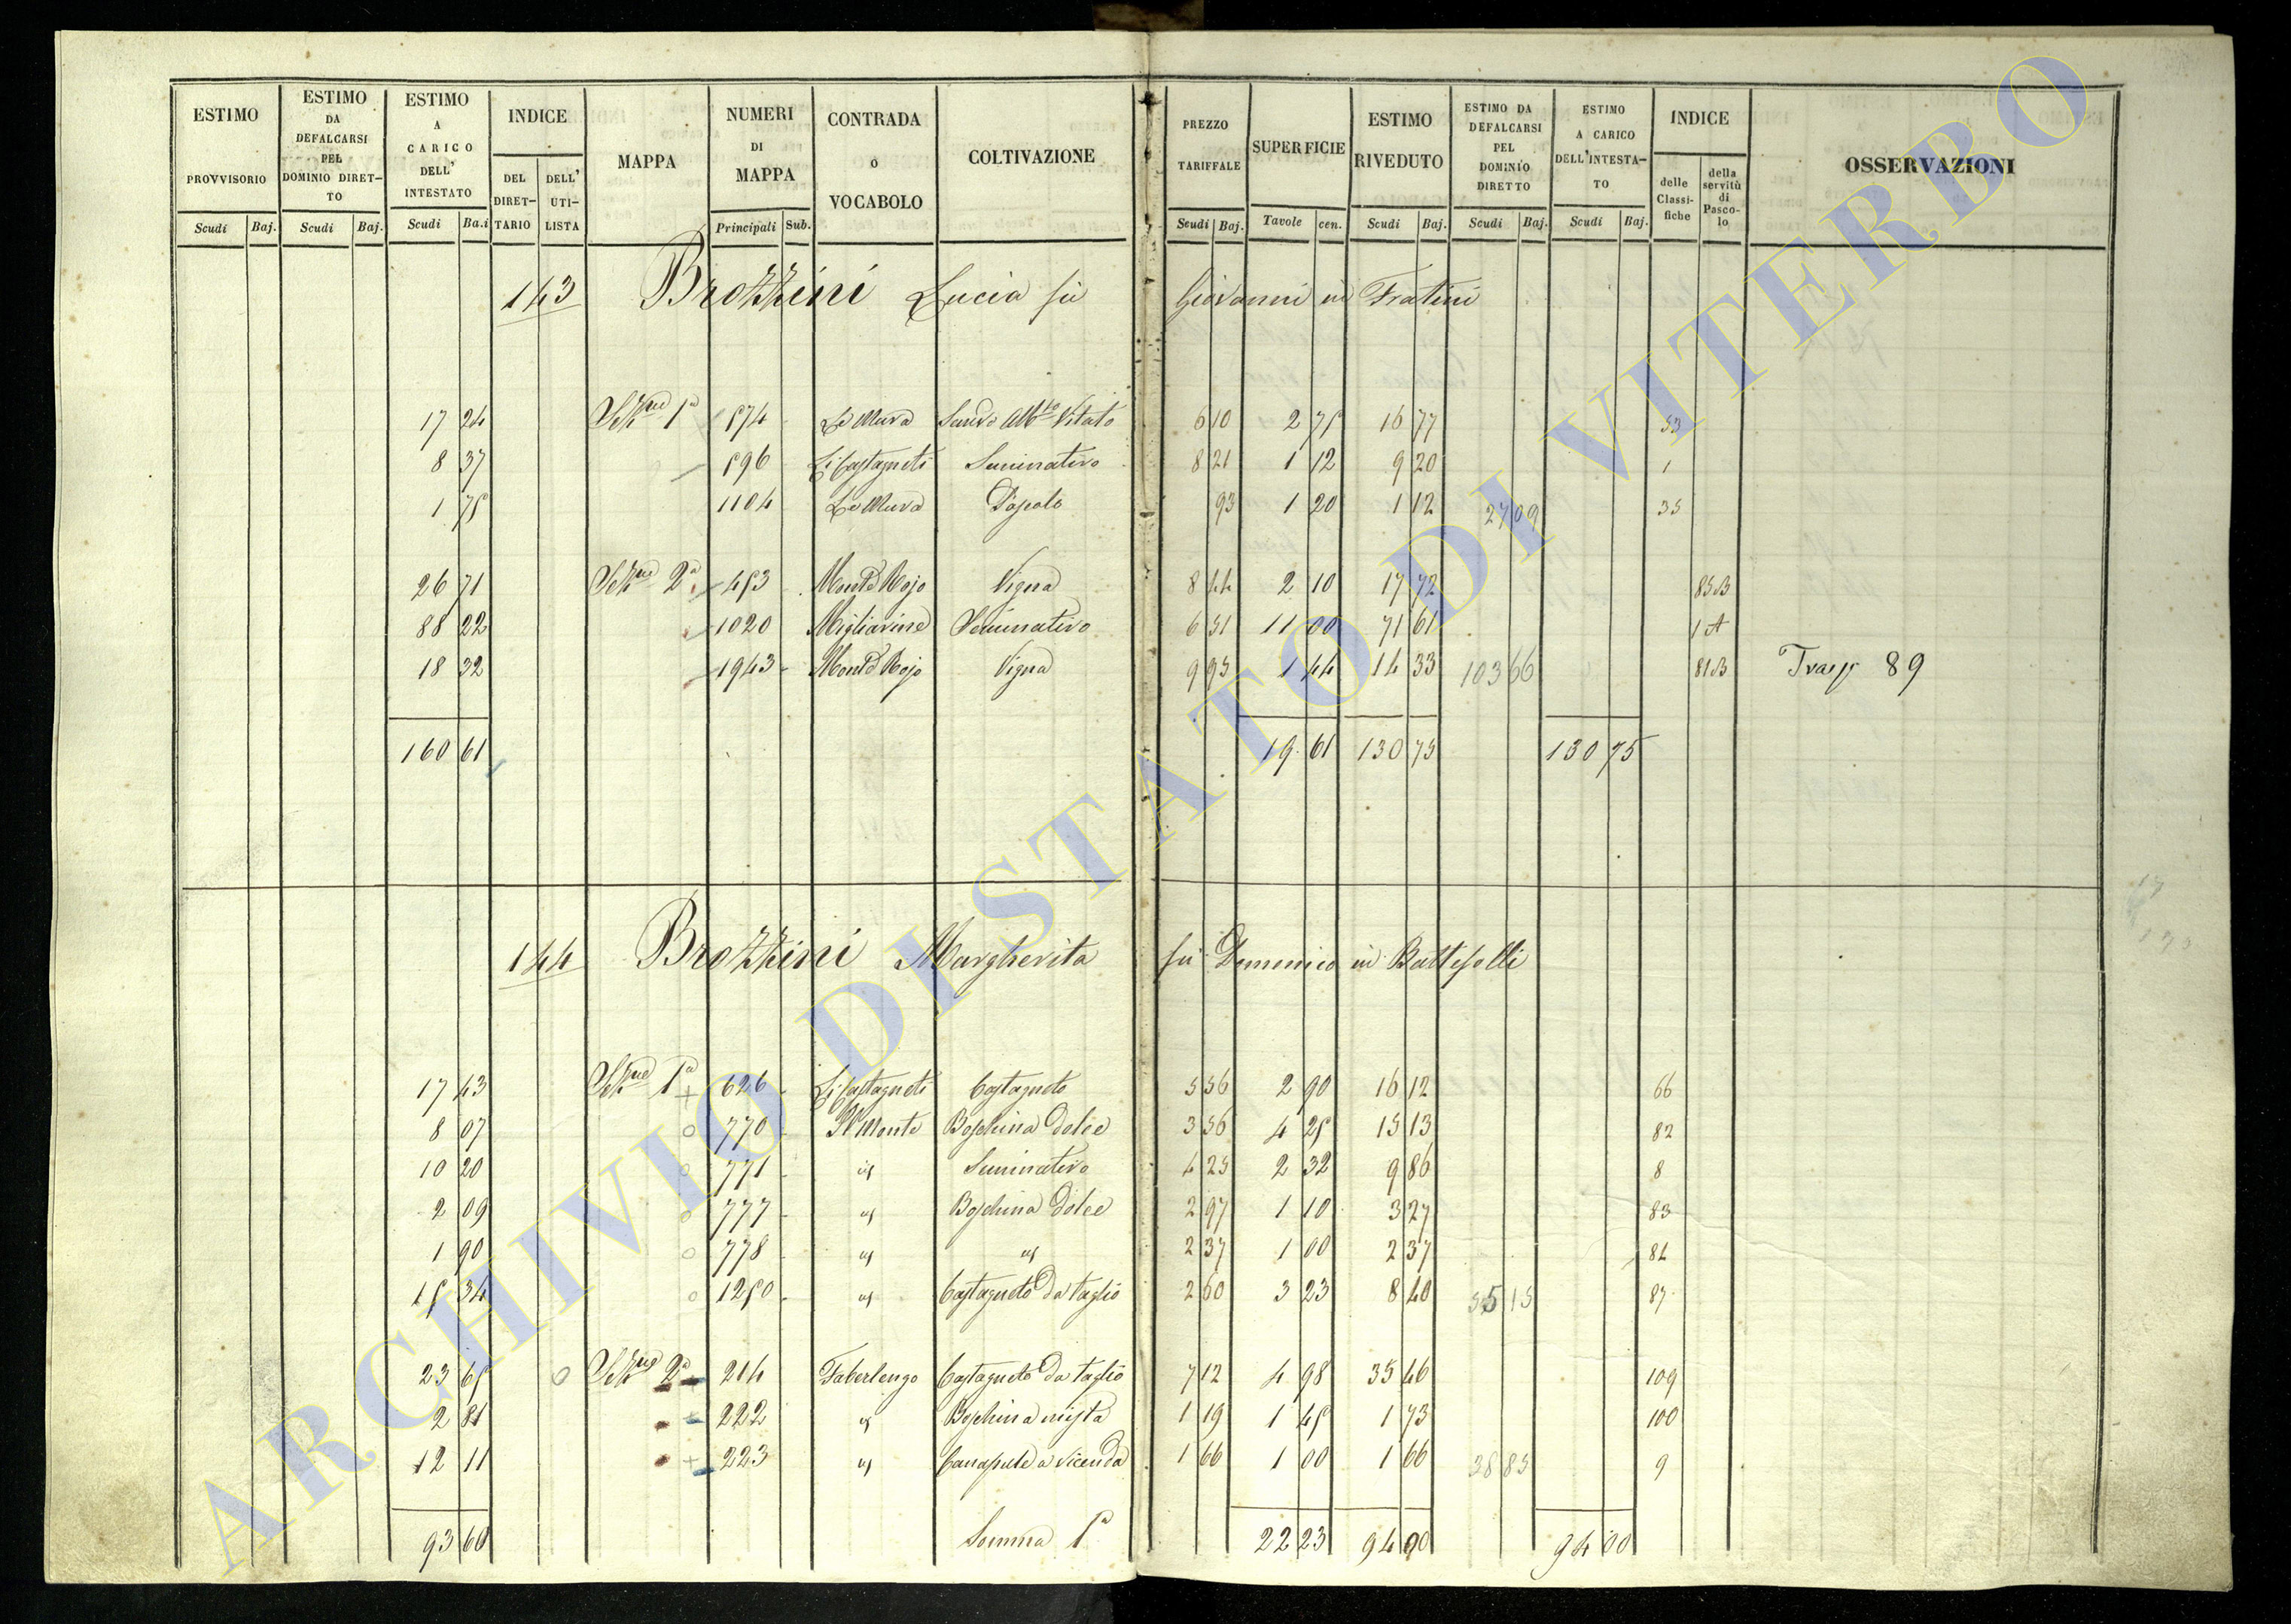 ESTIMO PROVVISORIO Scudi Baj.
ESTIMO DA DEFALCARSI PEL DOMINIO DIRETTO Scudi Baj.
ESTIMO A CARICO DELL' INTESTATO Scudi Ba.i
INDICE DEL DIRETTARIO DELL' UTILISTA
MAPPA
NUMERI DI MAPPA Principali Sub.
CONTRADA O VOCABOLO
COLTIVAZIONE
PREZZO TARIFFALE Scudi Baj.
SUPERFICIE Tavole cen.
ESTIMO RIVEDUTO Scudi Baj.
ESTIMO DA DEFALCARSI PEL DOMINIO DIRETTO Scudi Baj.
ESTIMO A CARICO DELL'INTESTATO Scudi Baj.
INDICE delle Classifiche della servitù di Pascolo
OSSERVAZIONI
143 Brozzini Lucia fù Giovanni in Fratini
17 24 Sezne 1a 574 Le Mura Semvo Albto Vitato 6 10 2 75 16 77 53
8 37 596 Li Castagneti Seminativo 8 21 1 12 9 20 1
1 75 1104 Le Mura Pascolo 93 1 20 1 12 27 09 35
26 71 Sezne 2a 453 Monte Rojo Vigna 8 44 2 10 17 72 85 B
88 22 1020 Migliarine Seminativo 6 51 11 00 71 61 1 A
18 32 1943 Monte Rojo Vigna 9 95 1 44 14 33 103 66 81 B Trasp 89
160 61 19 61 130 75 130 75
144 Brozzini Margherita fù Domenico in Battisolli
17 43 Sezne 1a 626 Li Castagneti Castagneto 5 56 2 90 16 12 66
8 07 770 Il Monte Boschina dolce 3 56 4 25 15 13 82
10 20 771 id Seminativo 4 25 2 32 9 86 8
2 09 777 id Boschina dolce 2 97 1 10 3 27 83
1 90 778 id id 2 37 1 00 2 37 84
15 34 1250 id Castagneto da taglio 2 60 3 23 8 40 55 15 87
23 65 Sezne 2a 214 Faberlengo Castagneto da taglio 7 12 4 98 35 46 109
2 81 222 id Boschina mista 1 19 1 45 1 73 100
12 11 223 id Canapule a vicenda 1 66 1 00 1 66 38 85 9
93 60 Somma 1a 22 23 94 00 94 00
ARCHIVIO DI STATO DI VITERBO